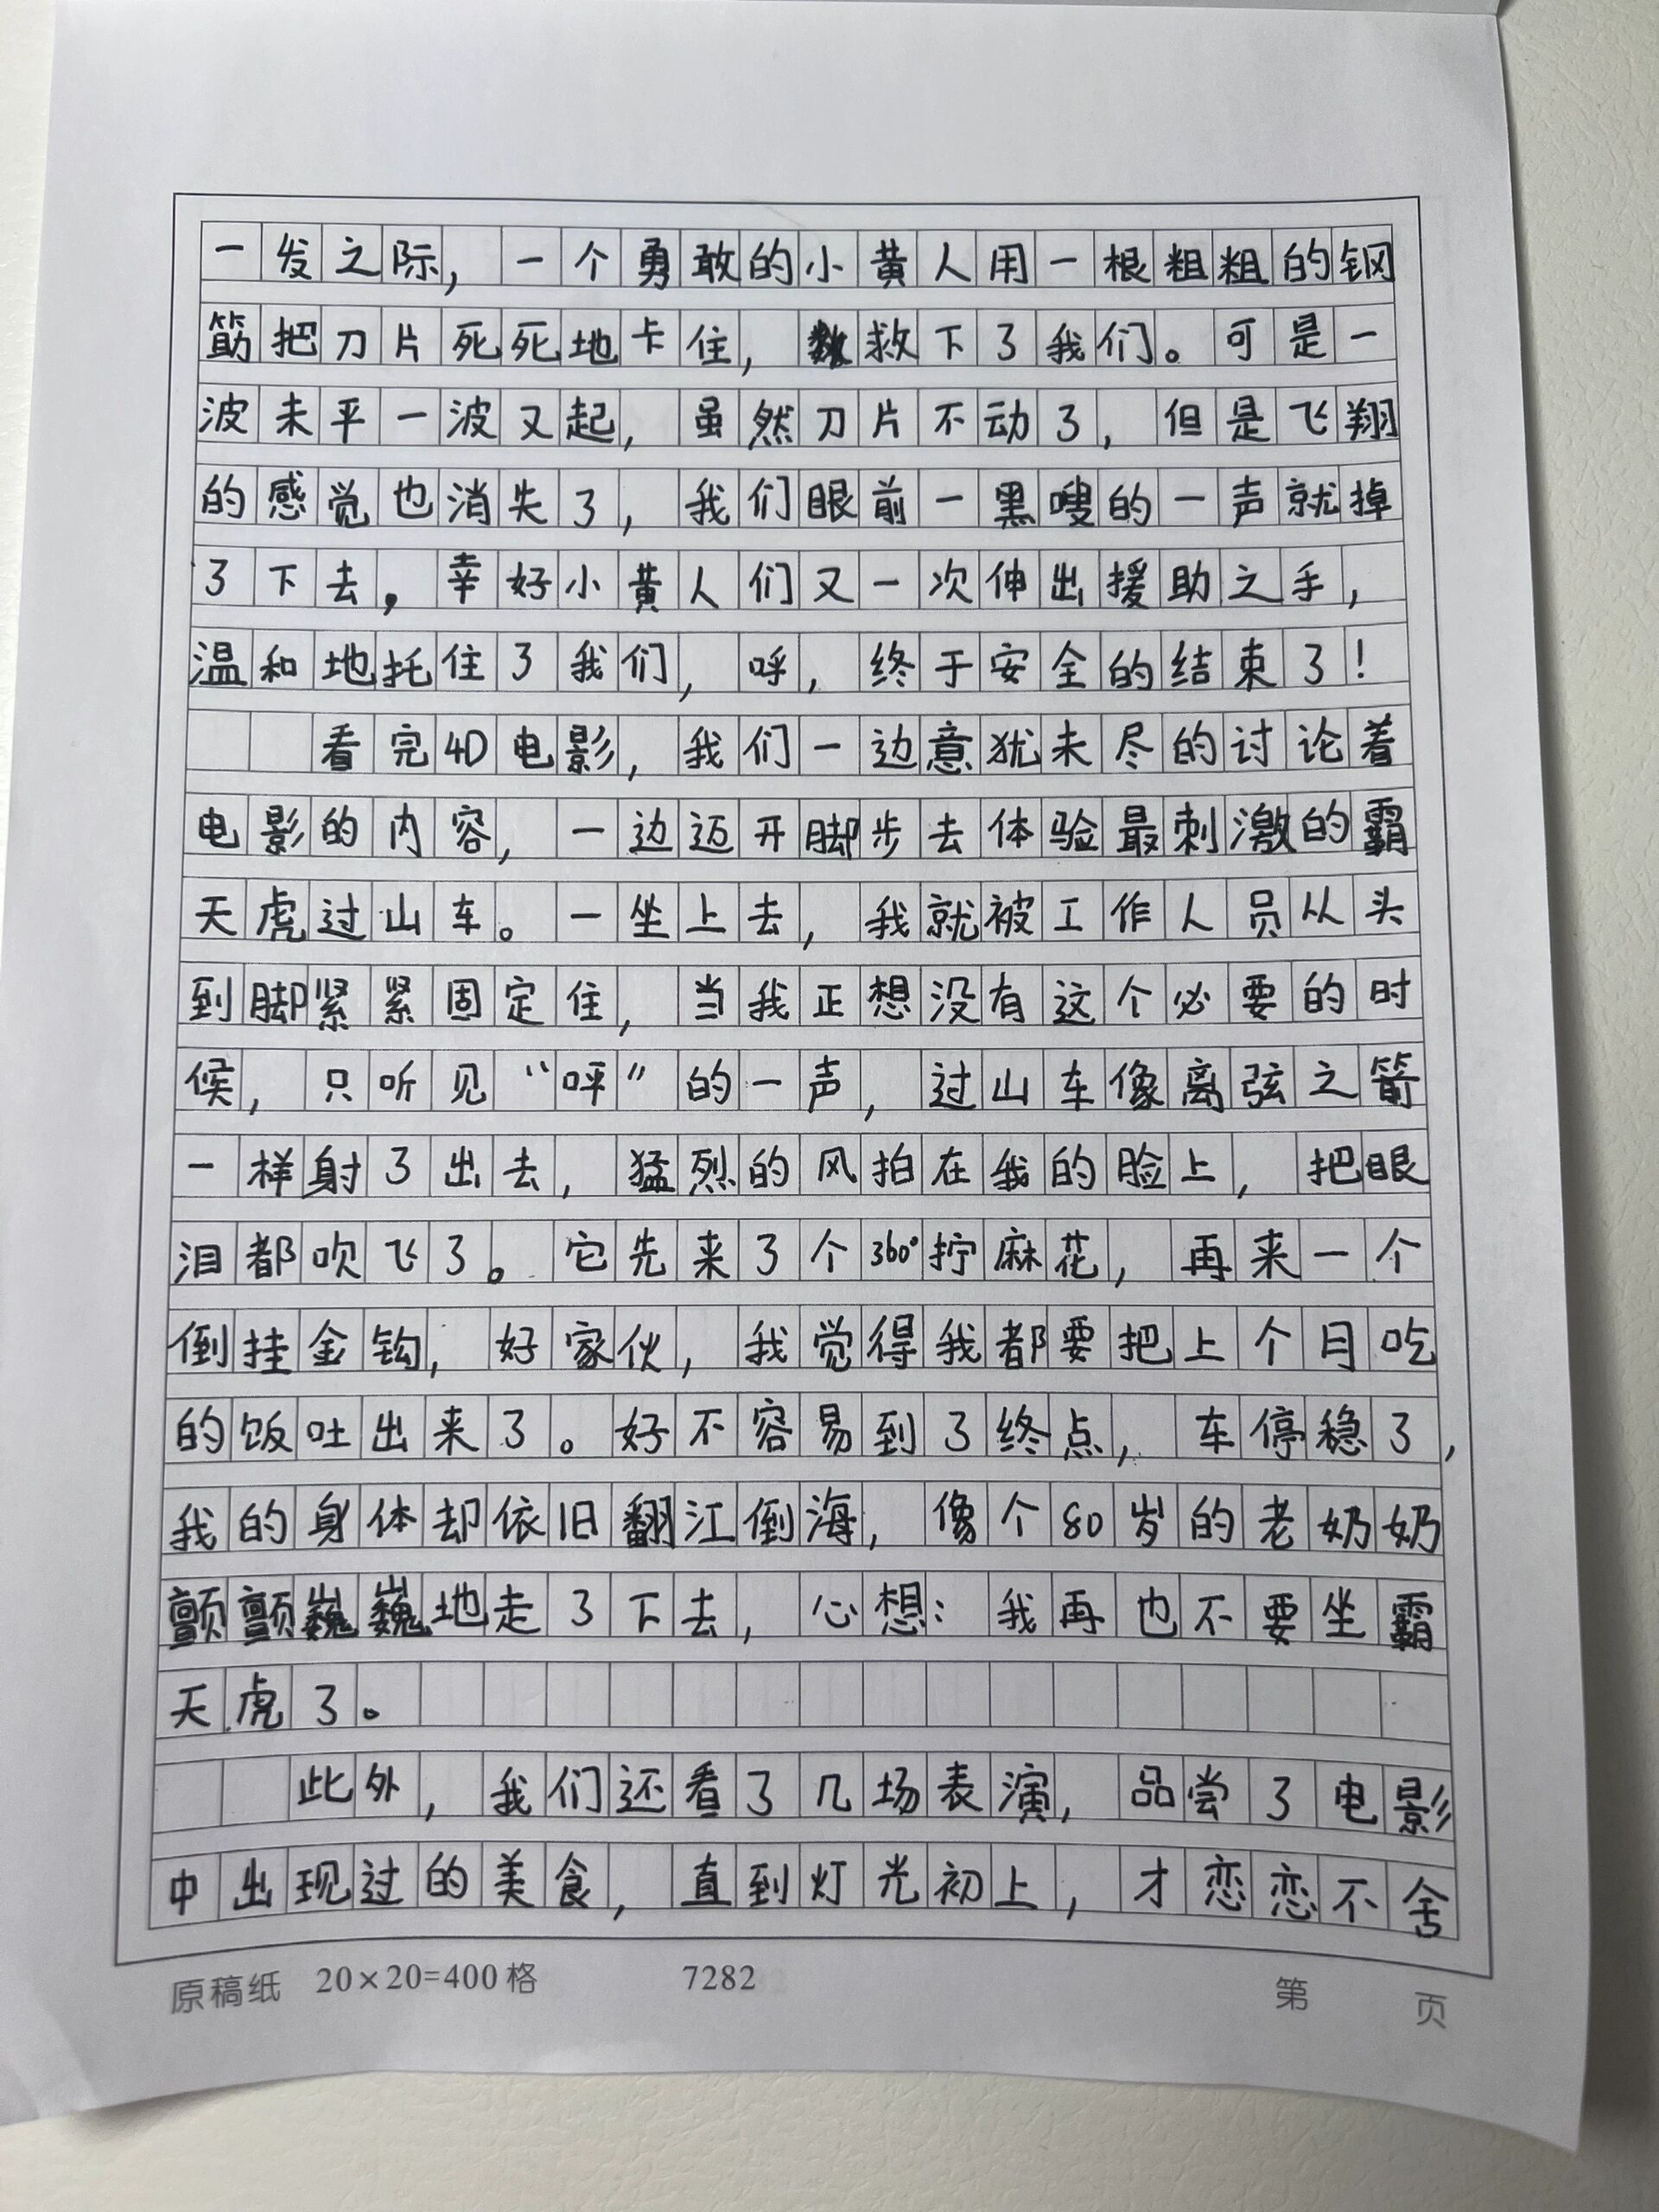 一发之际，一个勇敢的小黄人用一根粗粗的钢
筋把刀片死死地卡住，救下了我们。可是一
波未平一波又起，虽然刀片不动了，但是飞翔
的感觉也消失了，我们眼前一黑嗖的一声就掉
了下去，幸好小黄人们又一次伸出援助之手，
温和地托住了我们，呼，终于安全的结束了！
看完4D电影，我们一边意犹未尽的讨论着
电影的内容，一边迈开脚步去体验最刺激的霸
天虎过山车。一坐上去，我就被工作人员从头
到脚紧紧固定住，当我正想没有这个必要的时
候，只听见“呼”的一声，过山车像离弦之箭
一样射了出去，猛烈的风拍在我的脸上，把眼
泪都吹飞了。它先来了个360°拧麻花，再来一个
倒挂金钩，好家伙，我觉得我都要把上个月吃
的饭吐出来了。好不容易到了终点，车停稳了，
我的身体却依旧翻江倒海，像个80岁的老奶奶
颤颤巍巍地走了下去，心想：我再也不要坐霸
天虎了。
此外，我们还看了几场表演，品尝了电影
中出现过的美食，直到灯光初上，才恋恋不舍
原稿纸 20×20=400格 7282 第 页